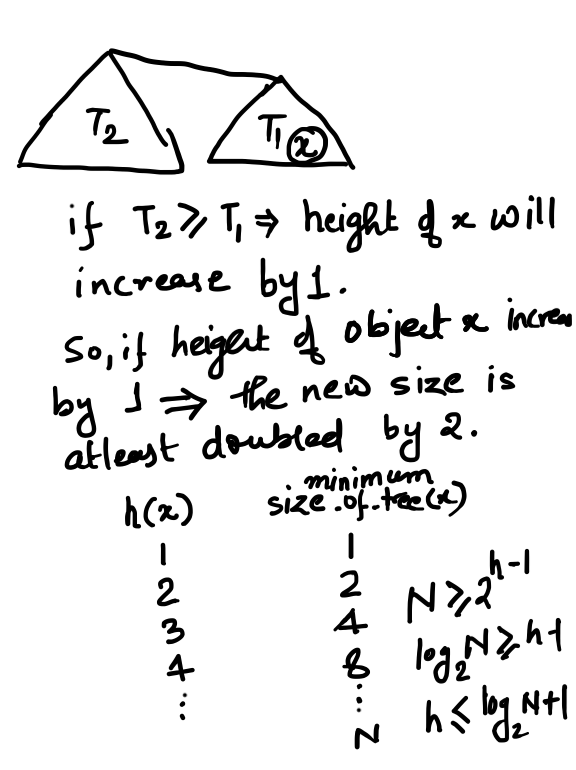 T₂ T₁ x
if T₂ ⩾ T₁ ⇒ height of x will
increase by 1.
So, if height of object x increa
by 1 ⇒ the new size is
atleast doubled by 2.
h(x) minimum size.of.tree(x)
1 1
2 2 N ⩾ 2^{h-1}
3 4
4 8 log₂N ⩾ h-1
⋮ ⋮ h ⩽ log₂N+1
N